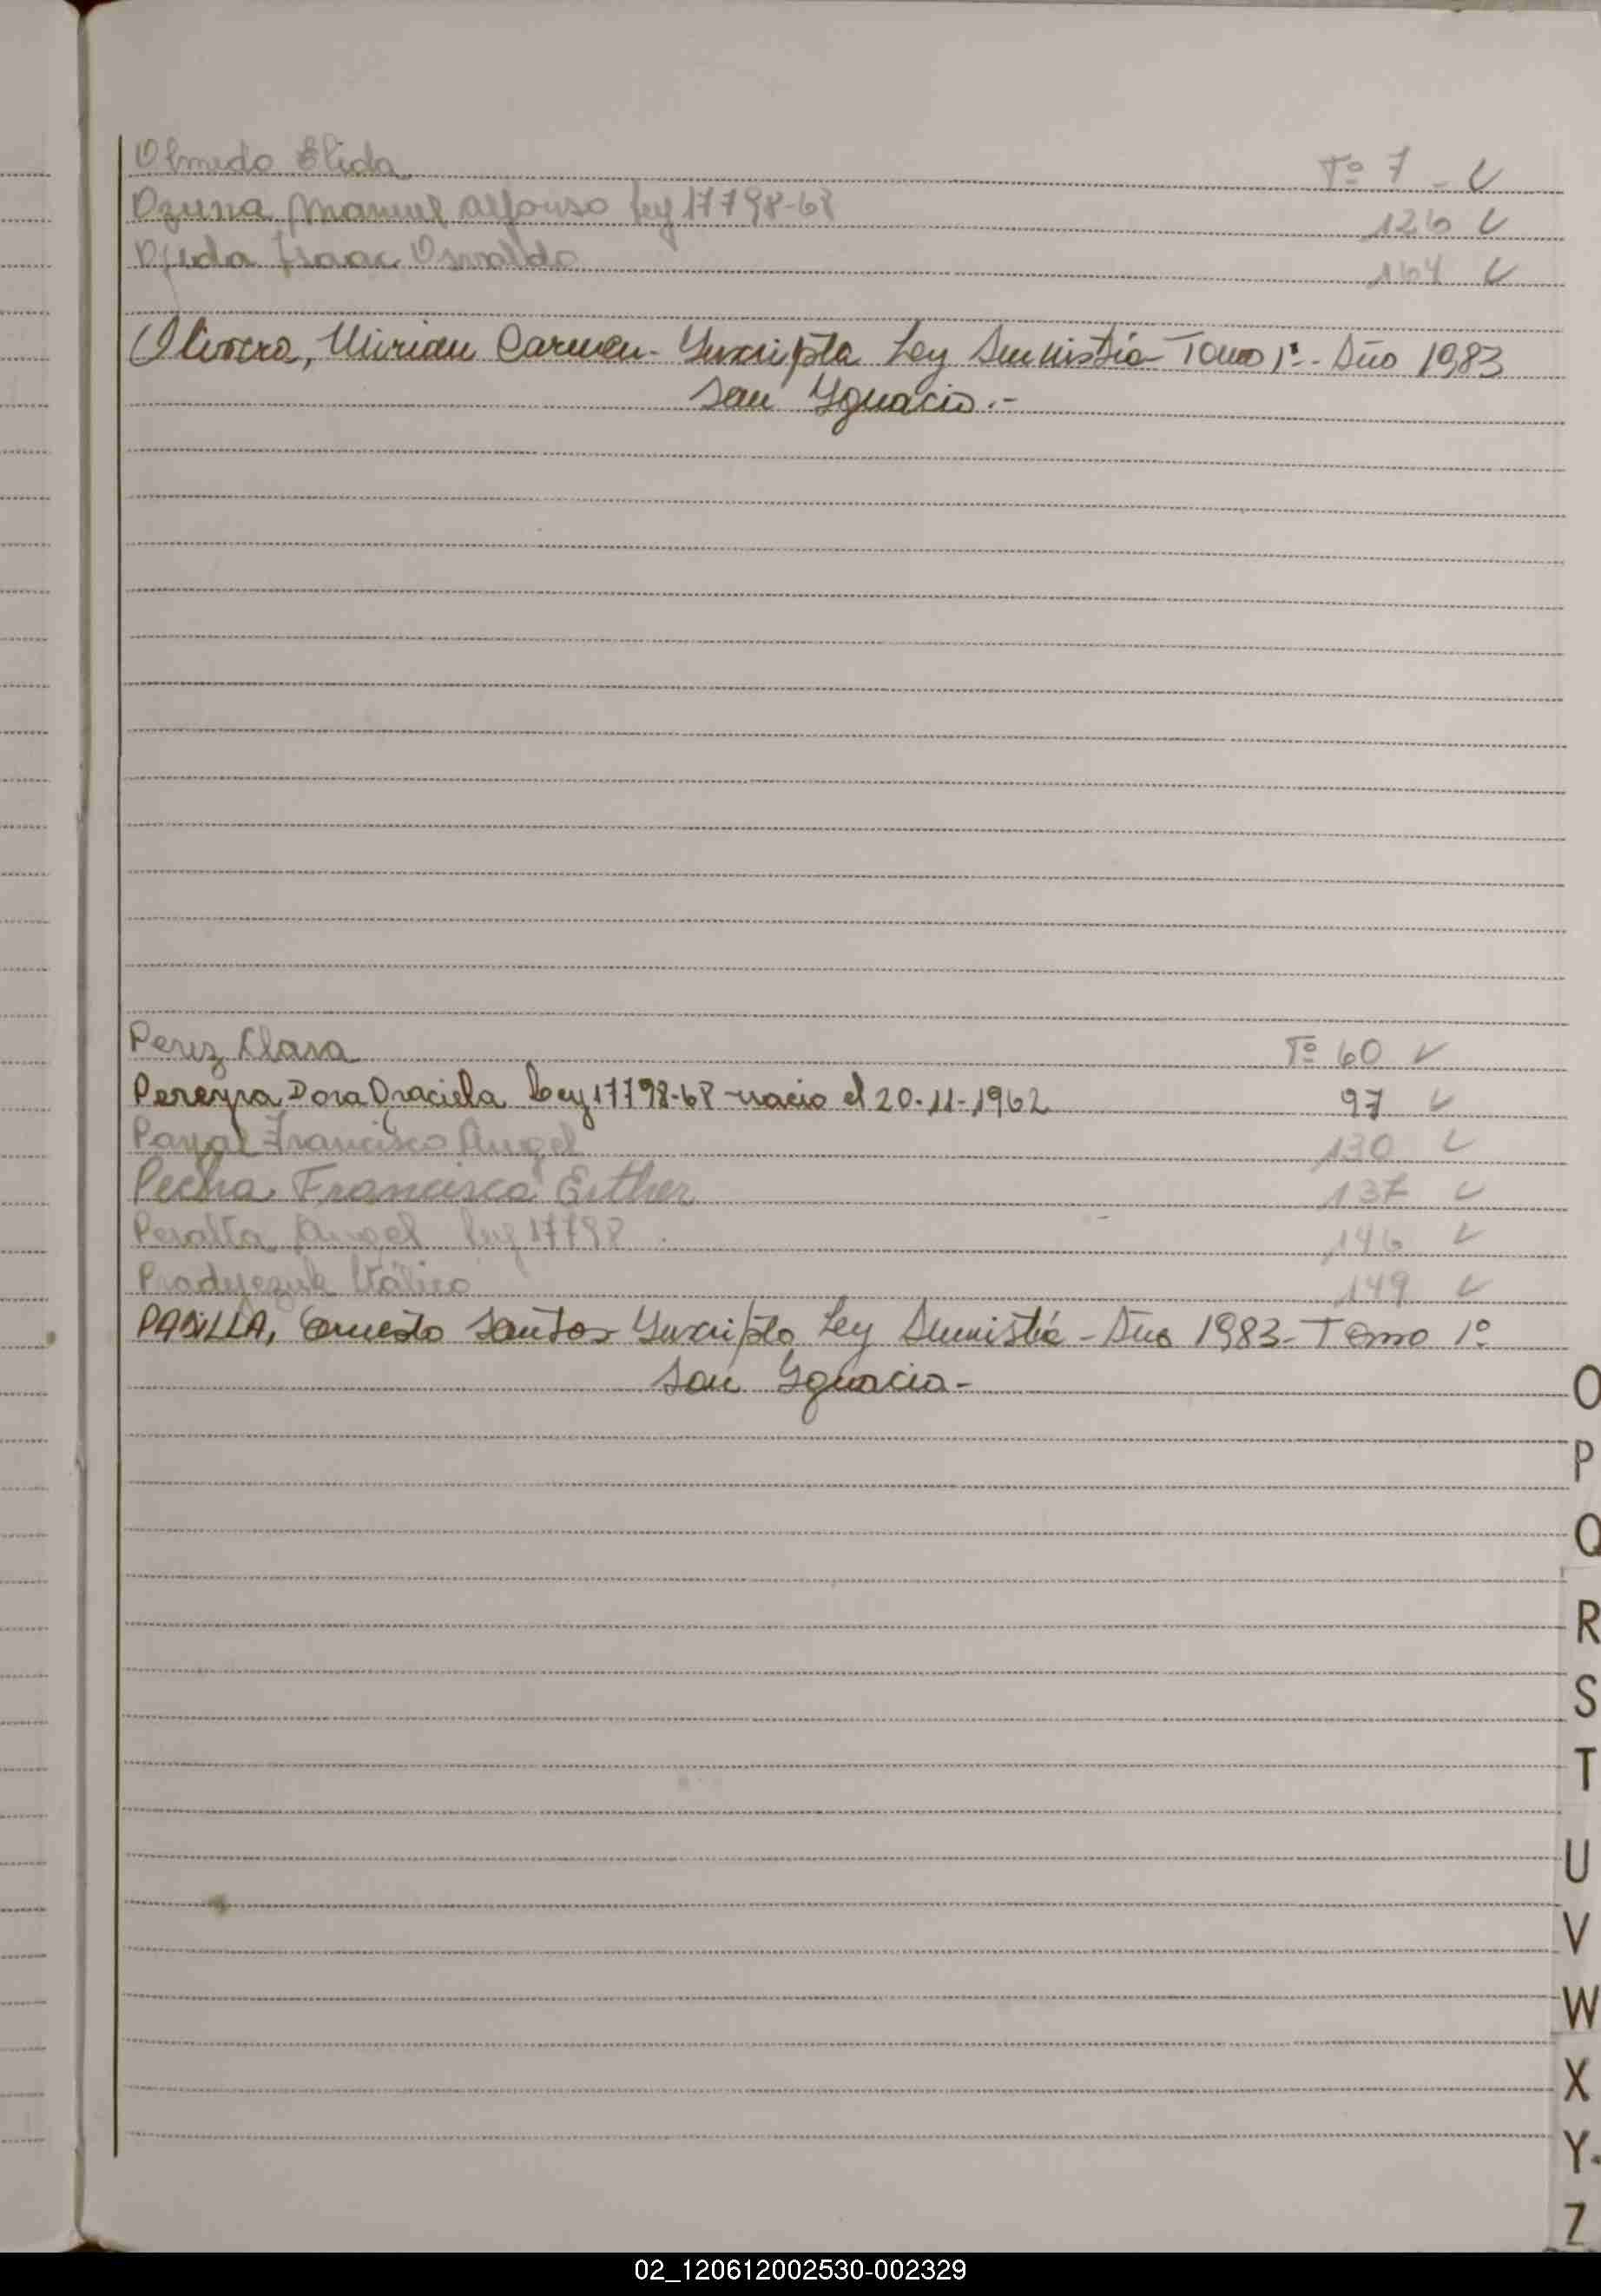 Olmedo Elida Tº 7 - ✓
Ozuna Manuel Alfonso ley 17798-68 126 ✓
Ojeda Isaac Osvaldo 164 ✓
Olivera, Mirian Carmen - Inscripta Ley Amnistía - Tomo 1º - Año 1983
San Ignacio.-
Perez Clara Tº 60 ✓
Pereyra Dora Graciela Ley 17798-68 - nacio el 20-11-1962 97 ✓
Francisco Angel 130 ✓
Pecha Francisca Esther 137 ✓
Peralta Angel ley 17798 146 ✓
149 ✓
PADILLA, Ernesto Santos Inscripto Ley Amnistía - Año 1983 - Tomo 1º
San Ignacio -
O
P
Q
R
S
T
U
V
W
X
Y
Z
02_120612002530-002329